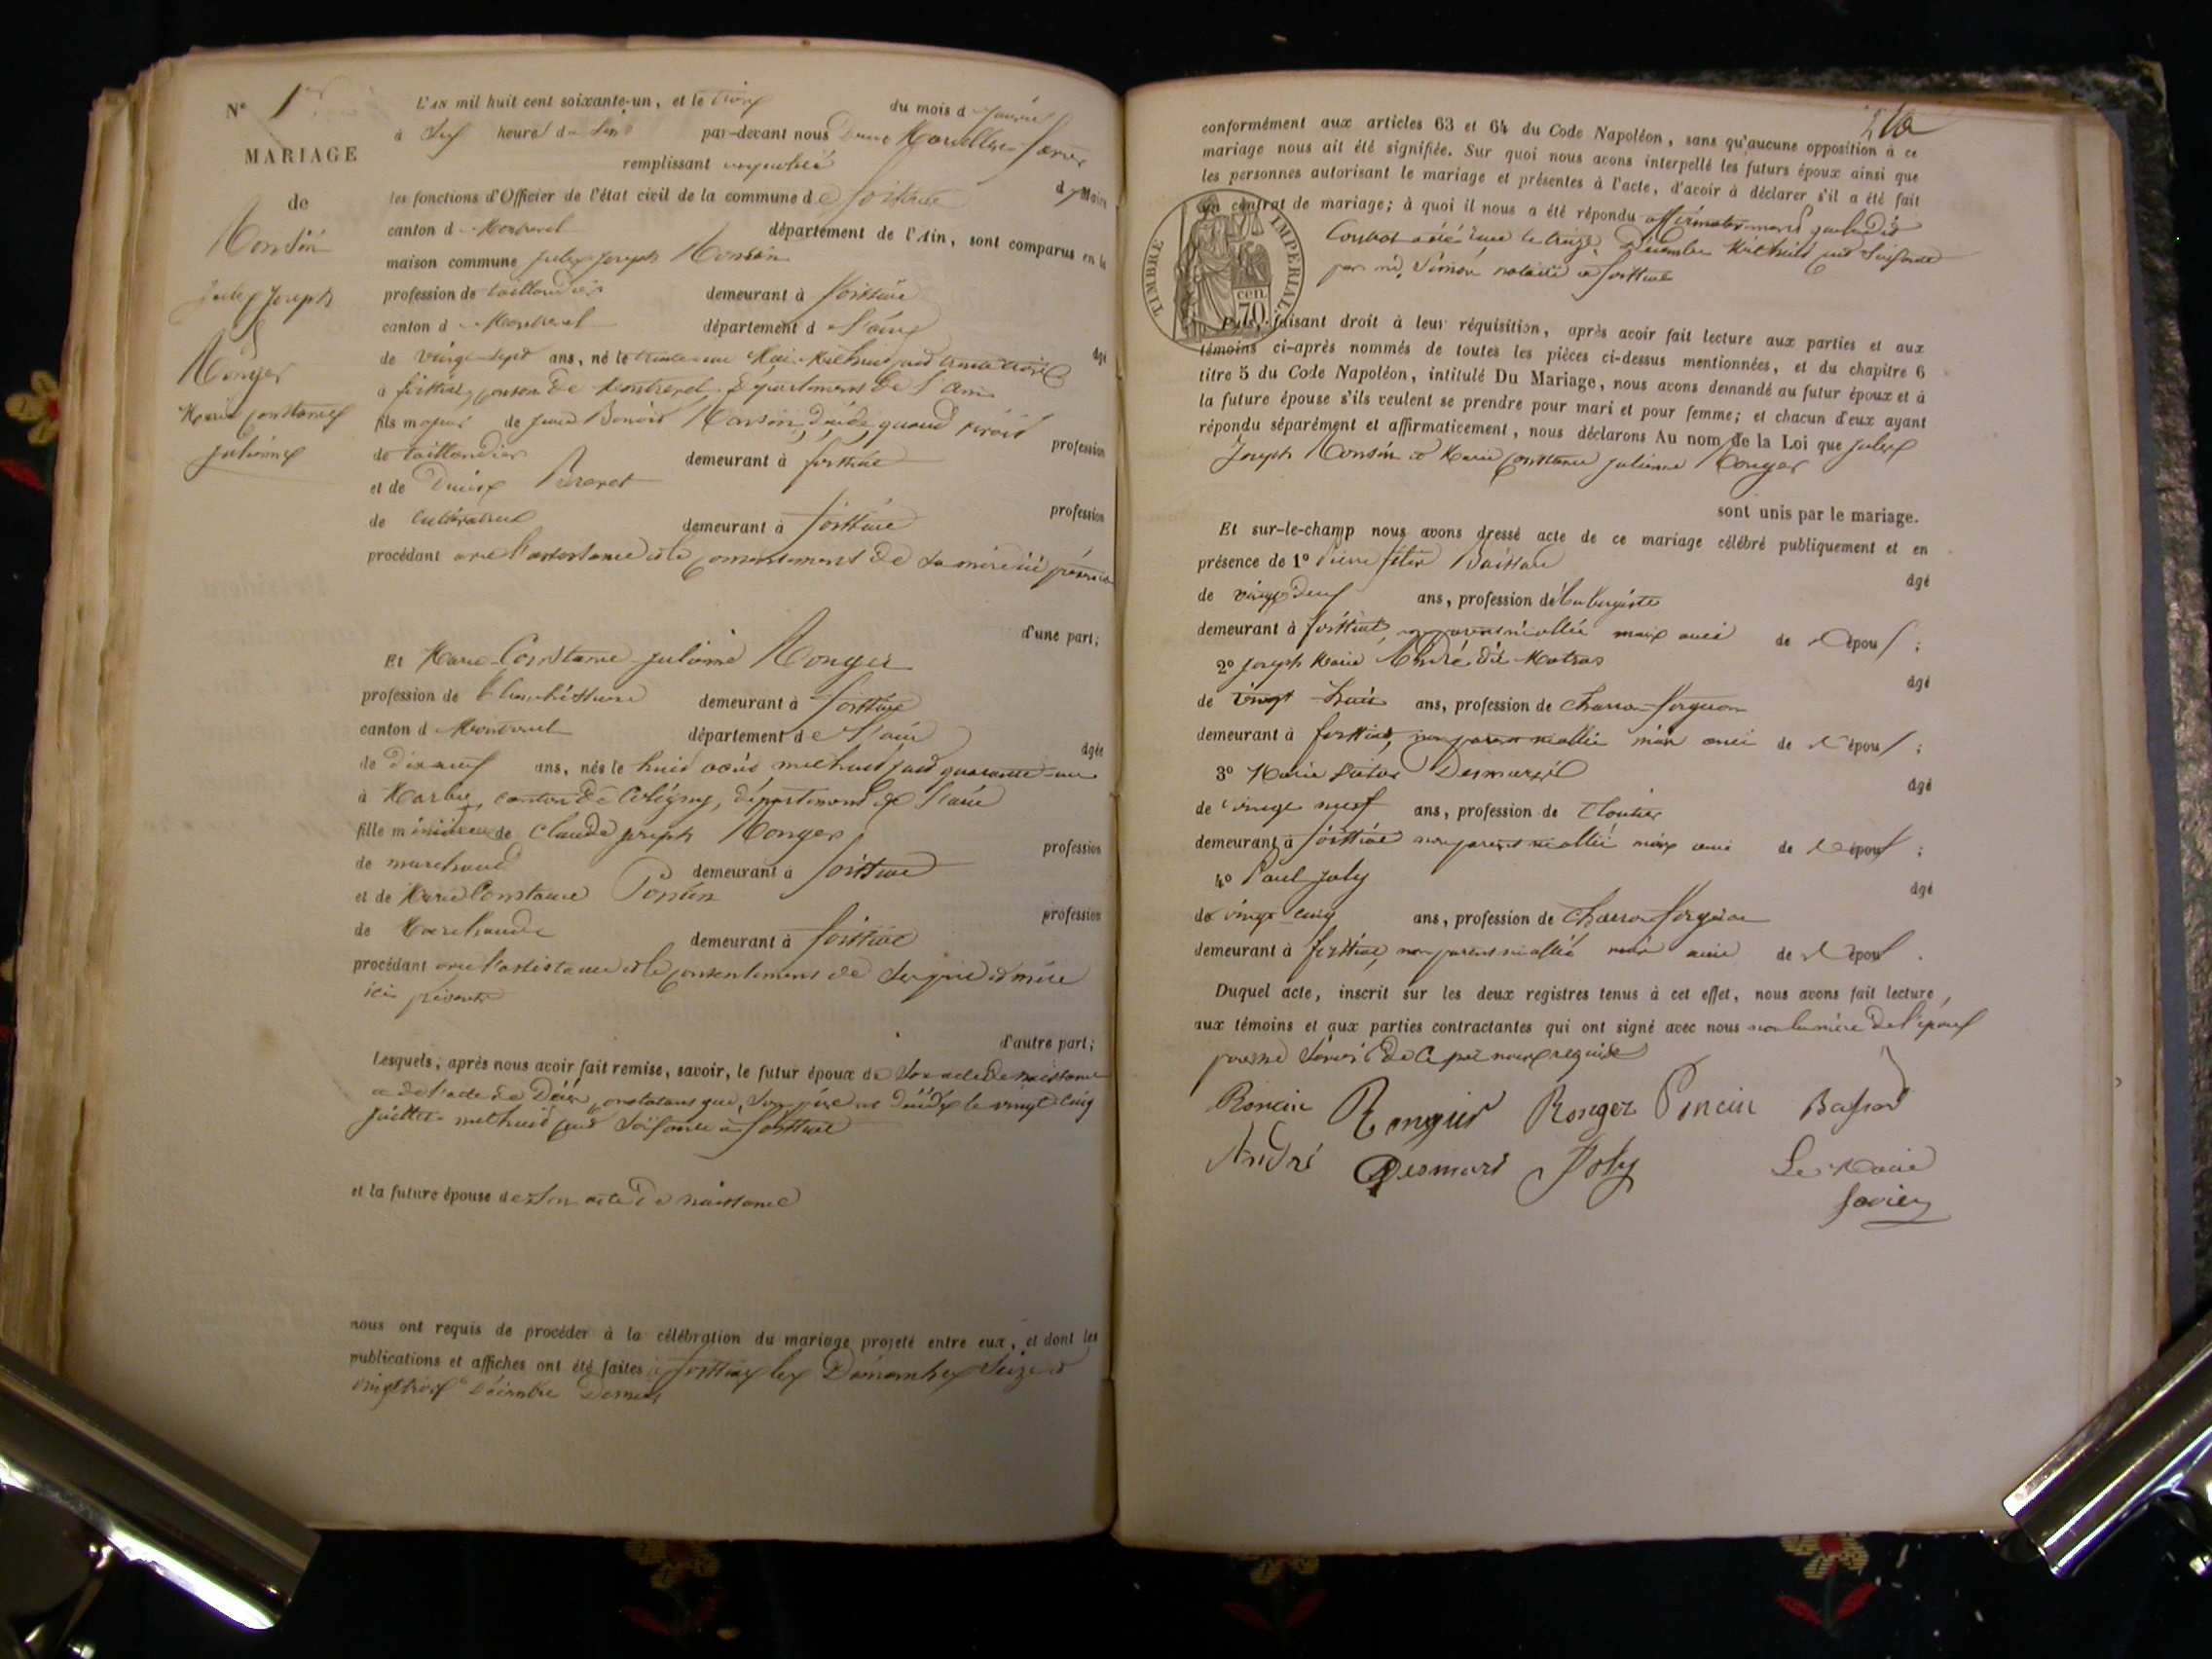 N° 1er
MARIAGE
de
Jules Joseph
Marie Constance
Julienne
L'AN mil huit cent soixante-un, et le trois du mois d Janvier
à heures du soir par-devant nous
remplissant
les fonctions d'Officier de l'état civil de la commune de Foissiat
canton d Montrevel département de l'Ain, sont comparus en la
maison commune Jules Joseph
profession de taillandier demeurant à Foissiat
canton d Montrevel département d l'ain âgé
de vingt-sept ans, né le trente un Mai mil huit cent trente trois
à foissiat, canton de Montrevel, Département de l'Ain
fils majeur de Benoit décédé, quand vivait profession
de taillandier demeurant à foissiat
et de Denise profession
de cultivatrice demeurant à foissiat
procédant avec l'assistance et le consentement de sa mère ici présente
d'une part;
Et Marie Constance julienne
profession de demeurant à foissiat
canton d Montrevel département de l'ain âgée
de dix neuf ans, née le huit août mil huit cent quarante un
à Marboz, canton de Coligny, département de l'ain
fille mineure de Claude joseph profession
de marchand demeurant à foissiat
et de Marie Constance Poncin profession
de Marchande demeurant à foissiat
procédant avec l'assistance et le consentement de ses père et mère
ici présents
d'autre part;
Lesquels, après nous avoir fait remise, savoir, le futur époux de son acte de naissance
et de l'acte de Décès, constatant que son père est décédé le vingt cinq
juillet mil huit cent soixante à foissiat
et la future épouse de son acte de naissance
nous ont requis de procéder à la célébration du mariage projeté entre eux, et dont les
publications et affiches ont été faites à foissiat les Dimanches seize et
vingt trois Décembre Dernier
conformément aux articles 63 et 64 du Code Napoléon, sans qu'aucune opposition à ce
mariage nous ait été signifiée. Sur quoi nous avons interpellé les futurs époux ainsi que
les personnes autorisant le mariage et présentes à l'acte, d'avoir à déclarer s'il a été fait
un contrat de mariage; à quoi il nous a été répondu affirmativement que ledit
Contrat a été reçu le treize Décembre Mil huit cent soixante
par me Simon notaire à foissiat
TIMBRE IMPÉRIAL
70 cen.
Puis, faisant droit à leur réquisition, après avoir fait lecture aux parties et aux
témoins ci-après nommés de toutes les pièces ci-dessus mentionnées, et du chapitre 6
titre 5 du Code Napoléon, intitulé Du Mariage, nous avons demandé au futur époux et à
la future épouse s'ils veulent se prendre pour mari et pour femme; et chacun d'eux ayant
répondu séparément et affirmativement, nous déclarons Au nom de la Loi que Jules
Joseph et Marie Constance julienne
sont unis par le mariage.
Et sur-le-champ nous avons dressé acte de ce mariage célébré publiquement et en
présence de 1° Pierre âgé
de ans, profession d'aubergiste
demeurant à foissiat, non parent ni allié mais ami de l'époux;
2° Joseph Marie André dit Matras âgé
de vingt huit ans, profession de Charron-forgeron
demeurant à foissiat, non parent ni allié mais ami de l'époux;
3° Marie Desmaris âgé
de vingt neuf ans, profession de Cloutier
demeurant à foissiat non parent ni allié mais ami de l'époux;
4° Paul Joly âgé
de vingt cinq ans, profession de Charron forgeron
demeurant à foissiat, non parent ni allié mais ami de l'époux.
Duquel acte, inscrit sur les deux registres tenus à cet effet, nous avons fait lecture,
aux témoins et aux parties contractantes qui ont signé avec nous non la mère de l'époux
pour ne savoir de ce par nous requise
Roncin Ronger Ronger Poncin
André Desmaris Joly Le Maire